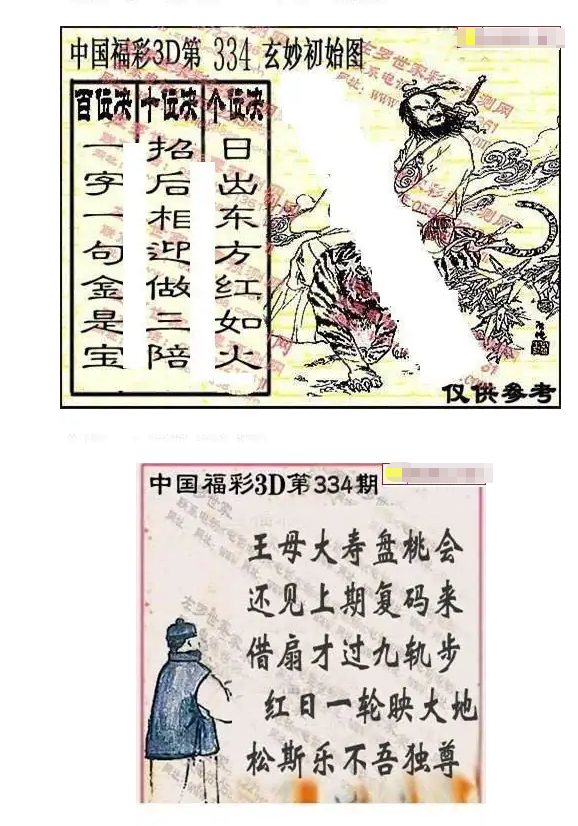 中国福彩3D第 334 玄妙初始图
百位决
十位决
个位决
一字一句金是宝
招后相迎做三陪
日出东方红如火
仅供参考
中国福彩3D第334期
王母大寿盘桃会
还见上期复码来
借扇才过九轨步
红日一轮映大地
松斯乐不吾独尊